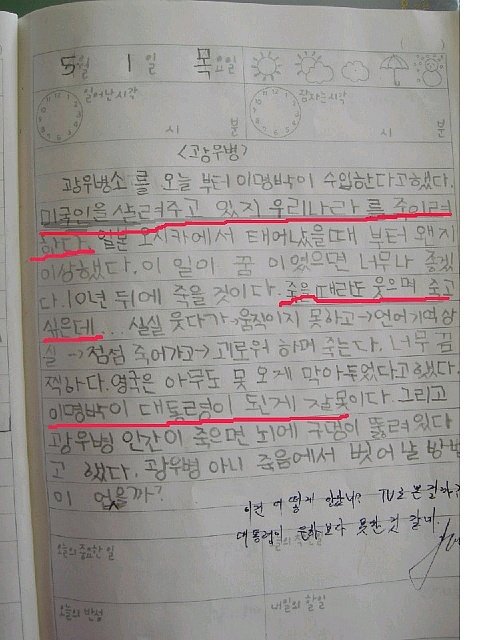 5월 1일 목요일
일어난시각 잠자는시각
시 분 시 분
<광우병>
광우병소 를 오늘 부터 이명박이 수입한다고했다.
미국인을 살려주고 있지 우리나라 를 죽이려
하다. 일본 오사카에서 태어났을때 부터 왠지
이상했다. 이 일이 꿈 이였으면 너무나 좋겠
다. 10년 뒤에 죽을 것이다. 죽을 때라도 웃으며 죽고
싶은데... 실실 웃다가→움직이지 못하고→언어기억상
실→점점 죽어가고→괴로워 하며 죽는다. 너무 끔
찍하다. 영국은 아무도 못 오게 막아두었다고했다.
이명박이 대통령이 된게 잘못이다. 그리고
광우병 인간이 죽으면 뇌에 구멍이 뚫려 있다
고 했다. 광우병 아니 죽음에서 벗어 날 방법
이 없을까?
이런 어떻게 알았니? TV로 본 걸까?
대통령이 보다 못한 것 같네.
오늘의 중요한 일
오늘의 반성 내일의 할일